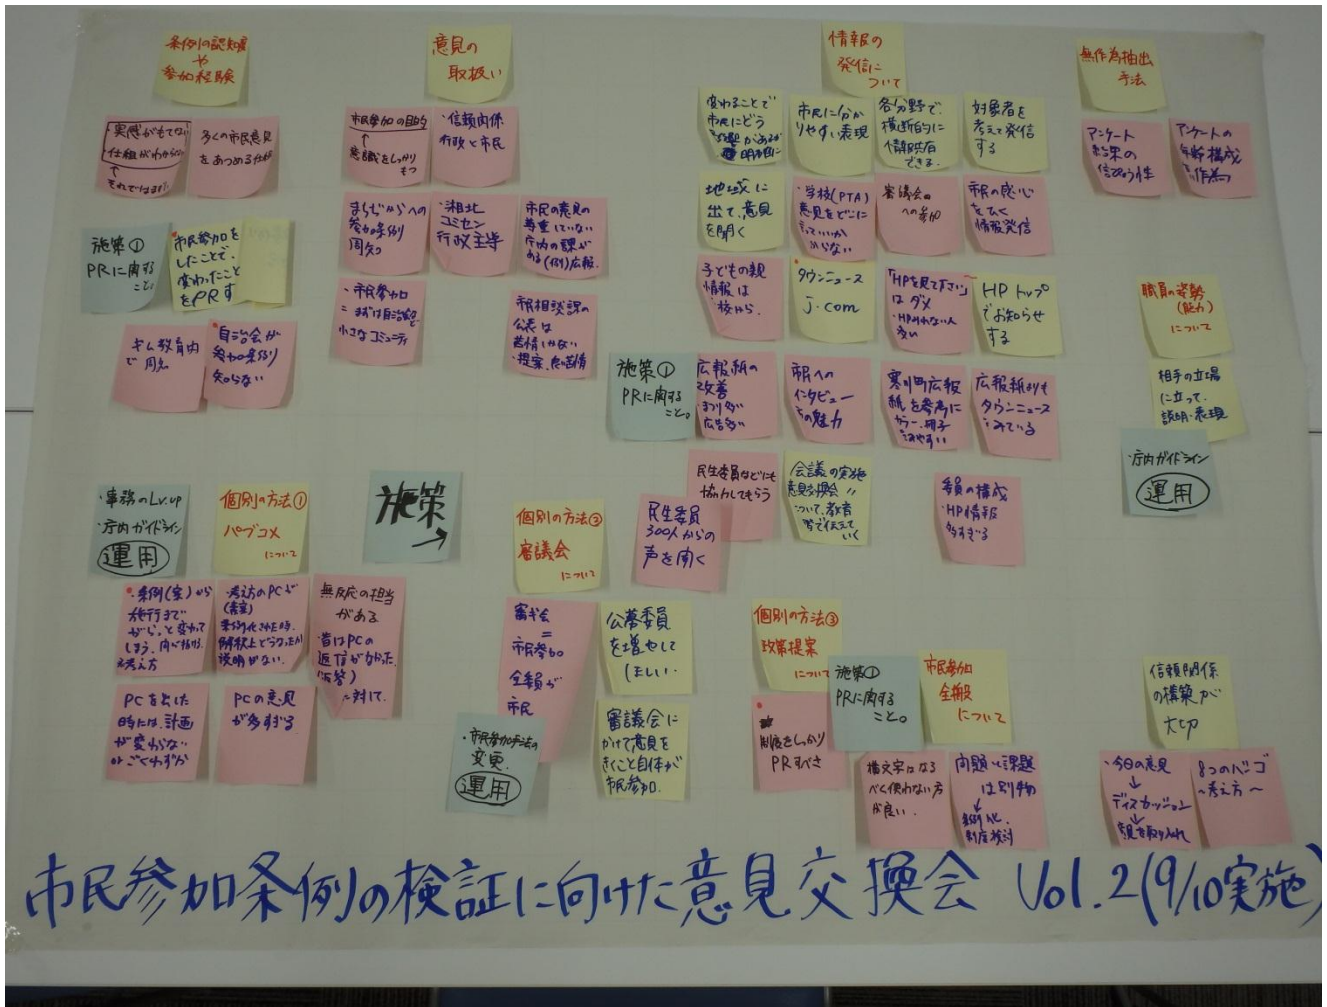 条例の認知度
や
参加経験
・実感がもてない
・仕組がわからない
それではまずい
多くの市民意見
をあつめる仕組
施策①
PRに関する
こと。
市民参加を
したことで、
変わったこと
をPRす
で周知
自治会が
参加条例
知らない
意見の
取扱い
市民参加の目的
意識をしっかり
もつ
・信頼関係
行政と市民
まちぢからへの
参加条例
周知
・湘北
コミセン
行政主導
市民の意見の
尊重していない
庁内の課が
ある(例)広報
・市民参加
=まずは自治会など
小さなコミュニティ
市民相談課の
公表は
苦情しかない
・提案、良い苦情
情報の
発信に
ついて
変わることで
市民にどう
影響があるか
明確に
市民に分か
りやすい表現
各分野で、
横断的に
情報共有
できる。
対象者を
考えて発信
する
地域に
出て、意見
を聞く
・学校(PTA)
意見をどこに
言っていいか
わからない
審議会の
への参加
市民の感心
をひく
情報発信
子どもの親
情報は
学校から。
タウンニュース
j.com
「HPを見て下さい」
はダメ
・HPみれない人
多い
HPトップ
でお知らせ
する
施策①
PRに関する
こと。
広報紙の
改善
・まつり多い
広告多い
市民への
インタビュー
ちの魅力
寒川町広報
紙を参考に
カラー、冊子
みやすい
広報紙よりも
タウンニュース
をみている
民生委員などにも
協力してもらう
会議の実施
意見交換会 〃
ついて、教育
等で伝えて
いく
民生委員
300人からの
声を聞く
委員の構成
・HP情報
多すぎる
無作為抽出
手法
アンケート
結果の
信ぴょう性
アンケートの
年齢構成
作為的
職員の姿勢
(能力)
について
相手の立場
に立って、
説明・表現
・庁内ガイドライン
運用
・事務のLv.up
・庁内ガイドライン
運用
個別の方法①
パブコメ
について
施策
→
・条例(案)から
施行まで
がらっと変わって
しまう、
考え方
・考え方のPCが
(素案)
条例化された時、
解釈上どうなったか
説明がない。
無反応の担当
がある
・昔はPCの
返信がなかった。
(回答)
に対して。
PCを出した
時には、計画
が変わらない
orごくわずか
PCの意見
が多すぎる
個別の方法②
審議会
について
審議会
=
市民参加
全委員が
市民
公募委員
を増やして
ほしい。
・市民参加手法の
変更。
運用
審議会に
かけて意見を
きくこと自体が
市民参加。
個別の方法③
政策提案
について
制度をしっかり
PRすべき
施策①
PRに関する
こと。
市民参加
全般
について
横文字はなる
べく使わない方
が良い。
問題と課題
は別物
条例化、
制度検討
信頼関係
の構築が
大切
・今日の意見
↓
ディスカッション
↓
意見を取り入れ
8つのハシゴ
～考え方～
市民参加条例の検証に向けた意見交換会 Vol.2(9/10実施)